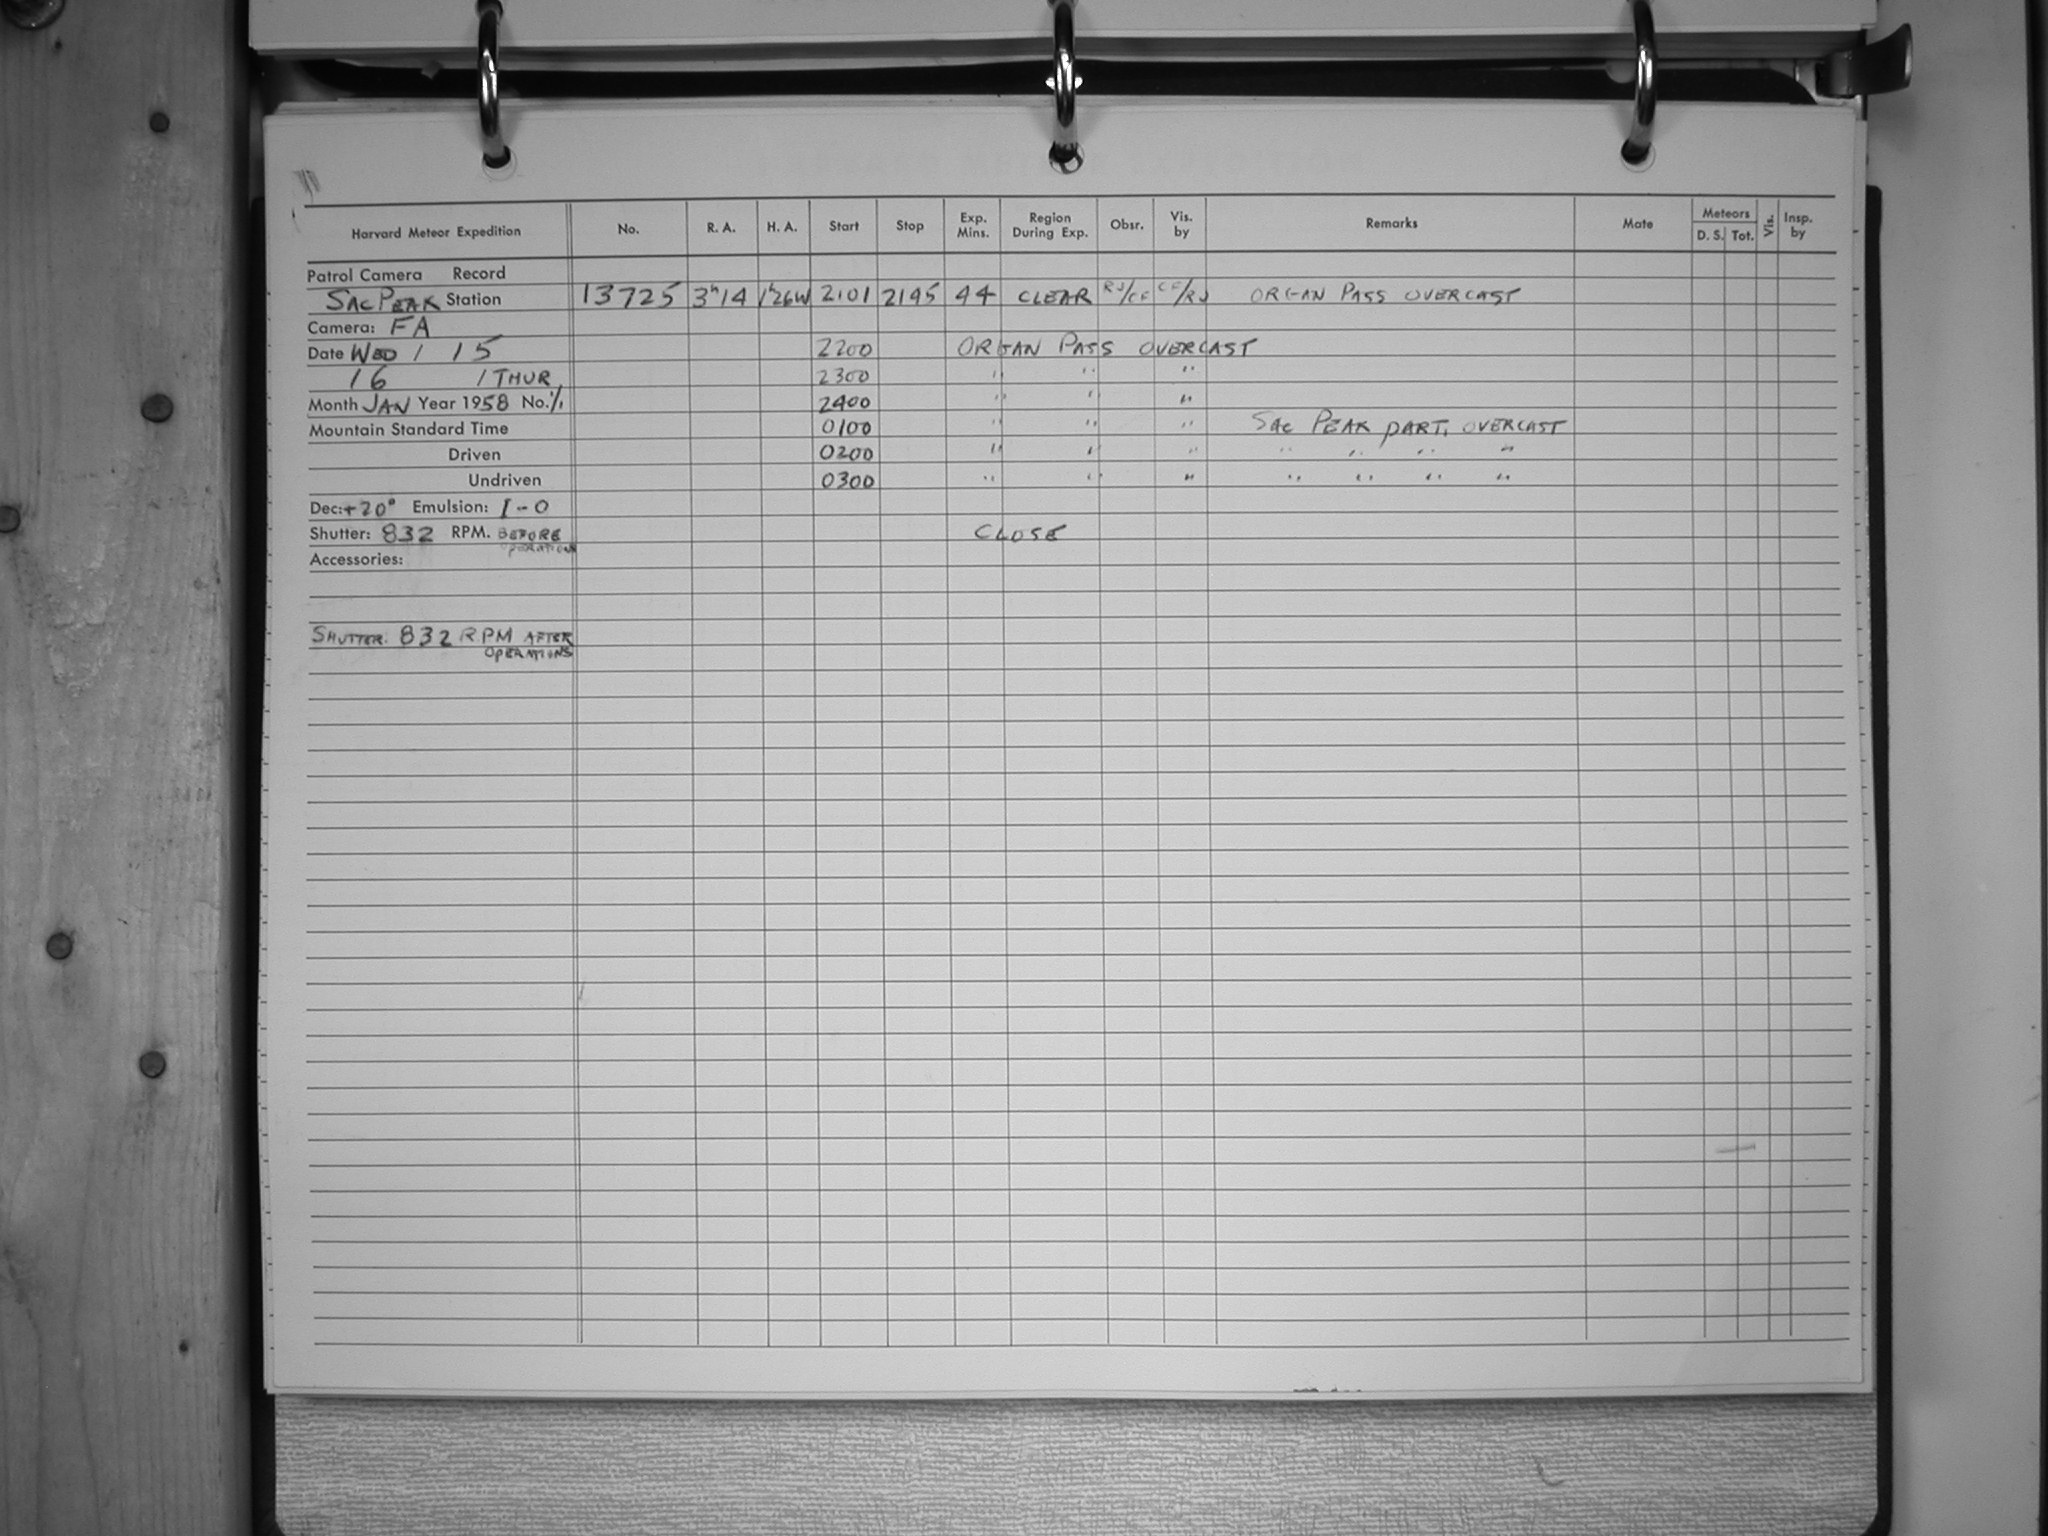 Harvard Meteor Expedition No. R. A. H. A. Start Stop Exp. Mins. Region During Exp. Obsr. Vis. by Remarks Mate Meteors D. S. Tot. Vis. Insp. by
Patrol Camera Record
SAC PEAK Station 13725 3h14 1h26W 2101 2145 44 CLEAR RJ/CF CF/RJ ORGAN PASS OVERCAST
Camera: FA
Date WED / 15 2200 ORGAN PASS OVERCAST
16 / THUR 2300 " " "
Month JAN Year 1958 No. 1/1 2400 " " "
Mountain Standard Time 0100 " " " SAC PEAK PART. OVERCAST
Driven 0200 " " " " " " "
Undriven 0300 " " " " " " "
Dec: +20° Emulsion: I-O
Shutter: 832 RPM. BEFORE OPERATIONS CLOSE
Accessories:
SHUTTER: 832 RPM AFTER
OPERATIONS